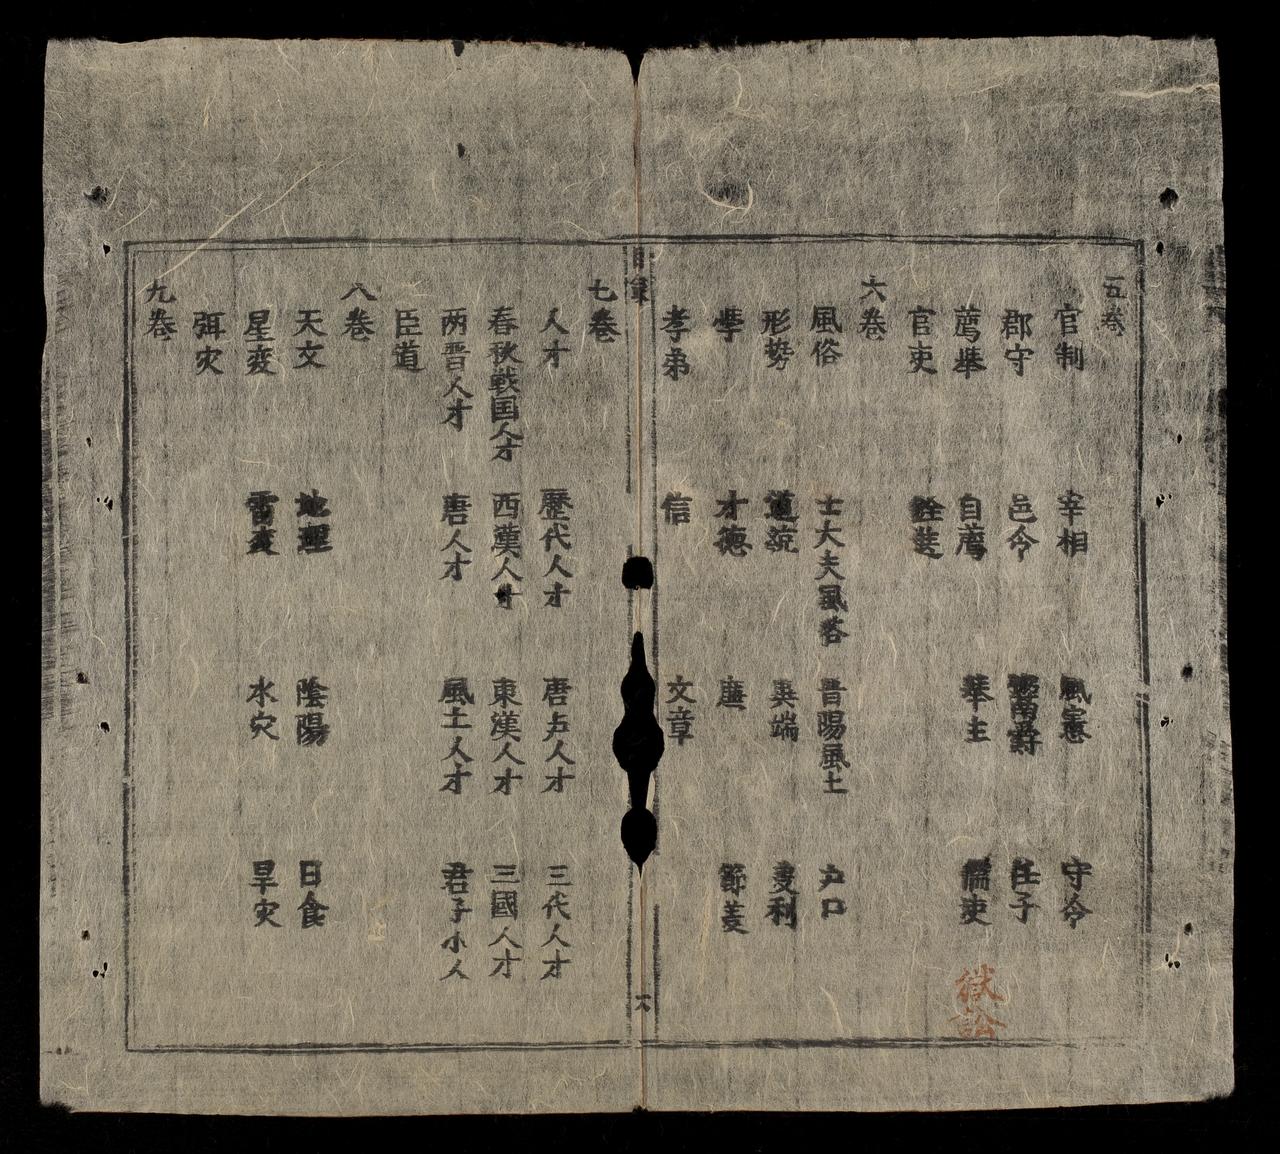 五卷
官制 宰相 風憲 守令
郡守 邑令 任子
薦擧 自薦 擧主 儒吏
獄訟
官吏 銓選
六卷
風俗 士大夫風俗 晋陽風土 戶口
形勢 道統 異端 義利
學 才德 廉 節義
孝弟 信 文章
目录
七卷
人才 歷代人才 唐虞人才 三代人才
春秋战国人才 西漢人才 東漢人才 三國人才
两晋人才 唐人才 風土人才 君子小人
臣道
八卷
天文 地理 陰陽 日食
星变 雷变 水灾 旱灾
弭灾
九卷